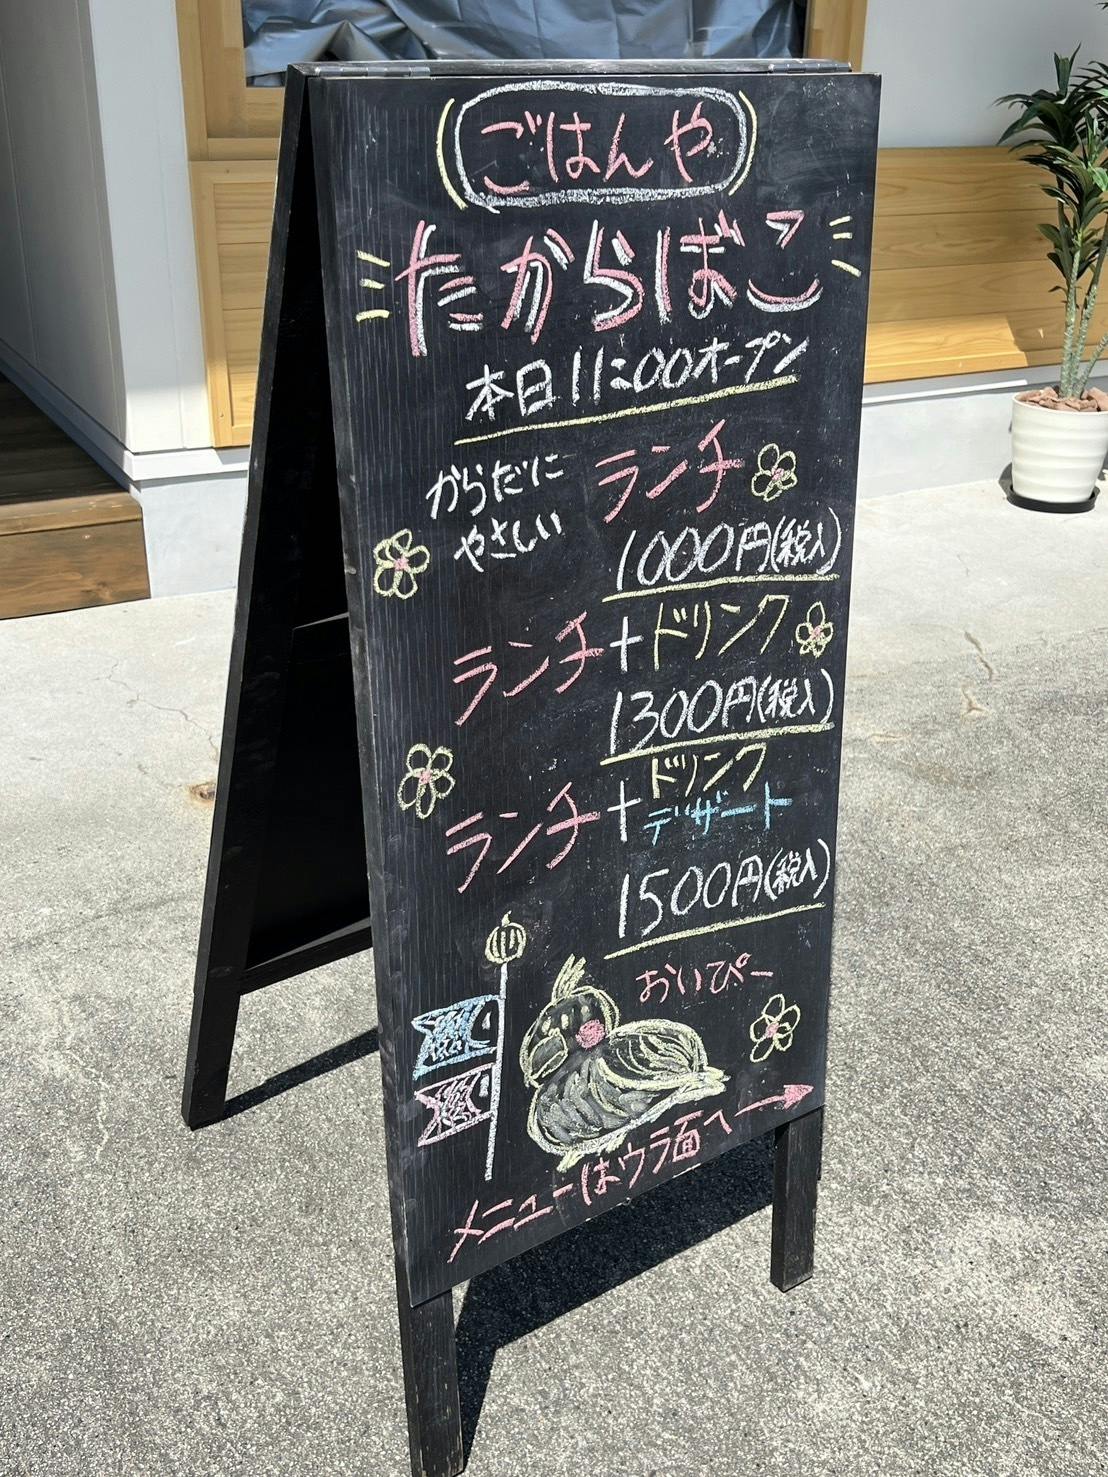 ごはんや
たからばこ
本日11:00オープン
からだに
やさしい
ランチ
1000円(税込)
ランチ+ドリンク
1300円(税込)
ランチ+ドリンク
デザート
1500円(税込)
おいぴー
メニューはウラ面へ→